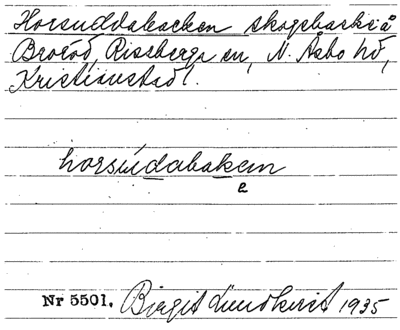 Horsuddabacken skogsbacke å
Broröd, Rissberga sn, N. Åsbo hd,
Kristianstad l.
horsúdabakem
e
Nr 5501. Birgit Lundkvist 1935